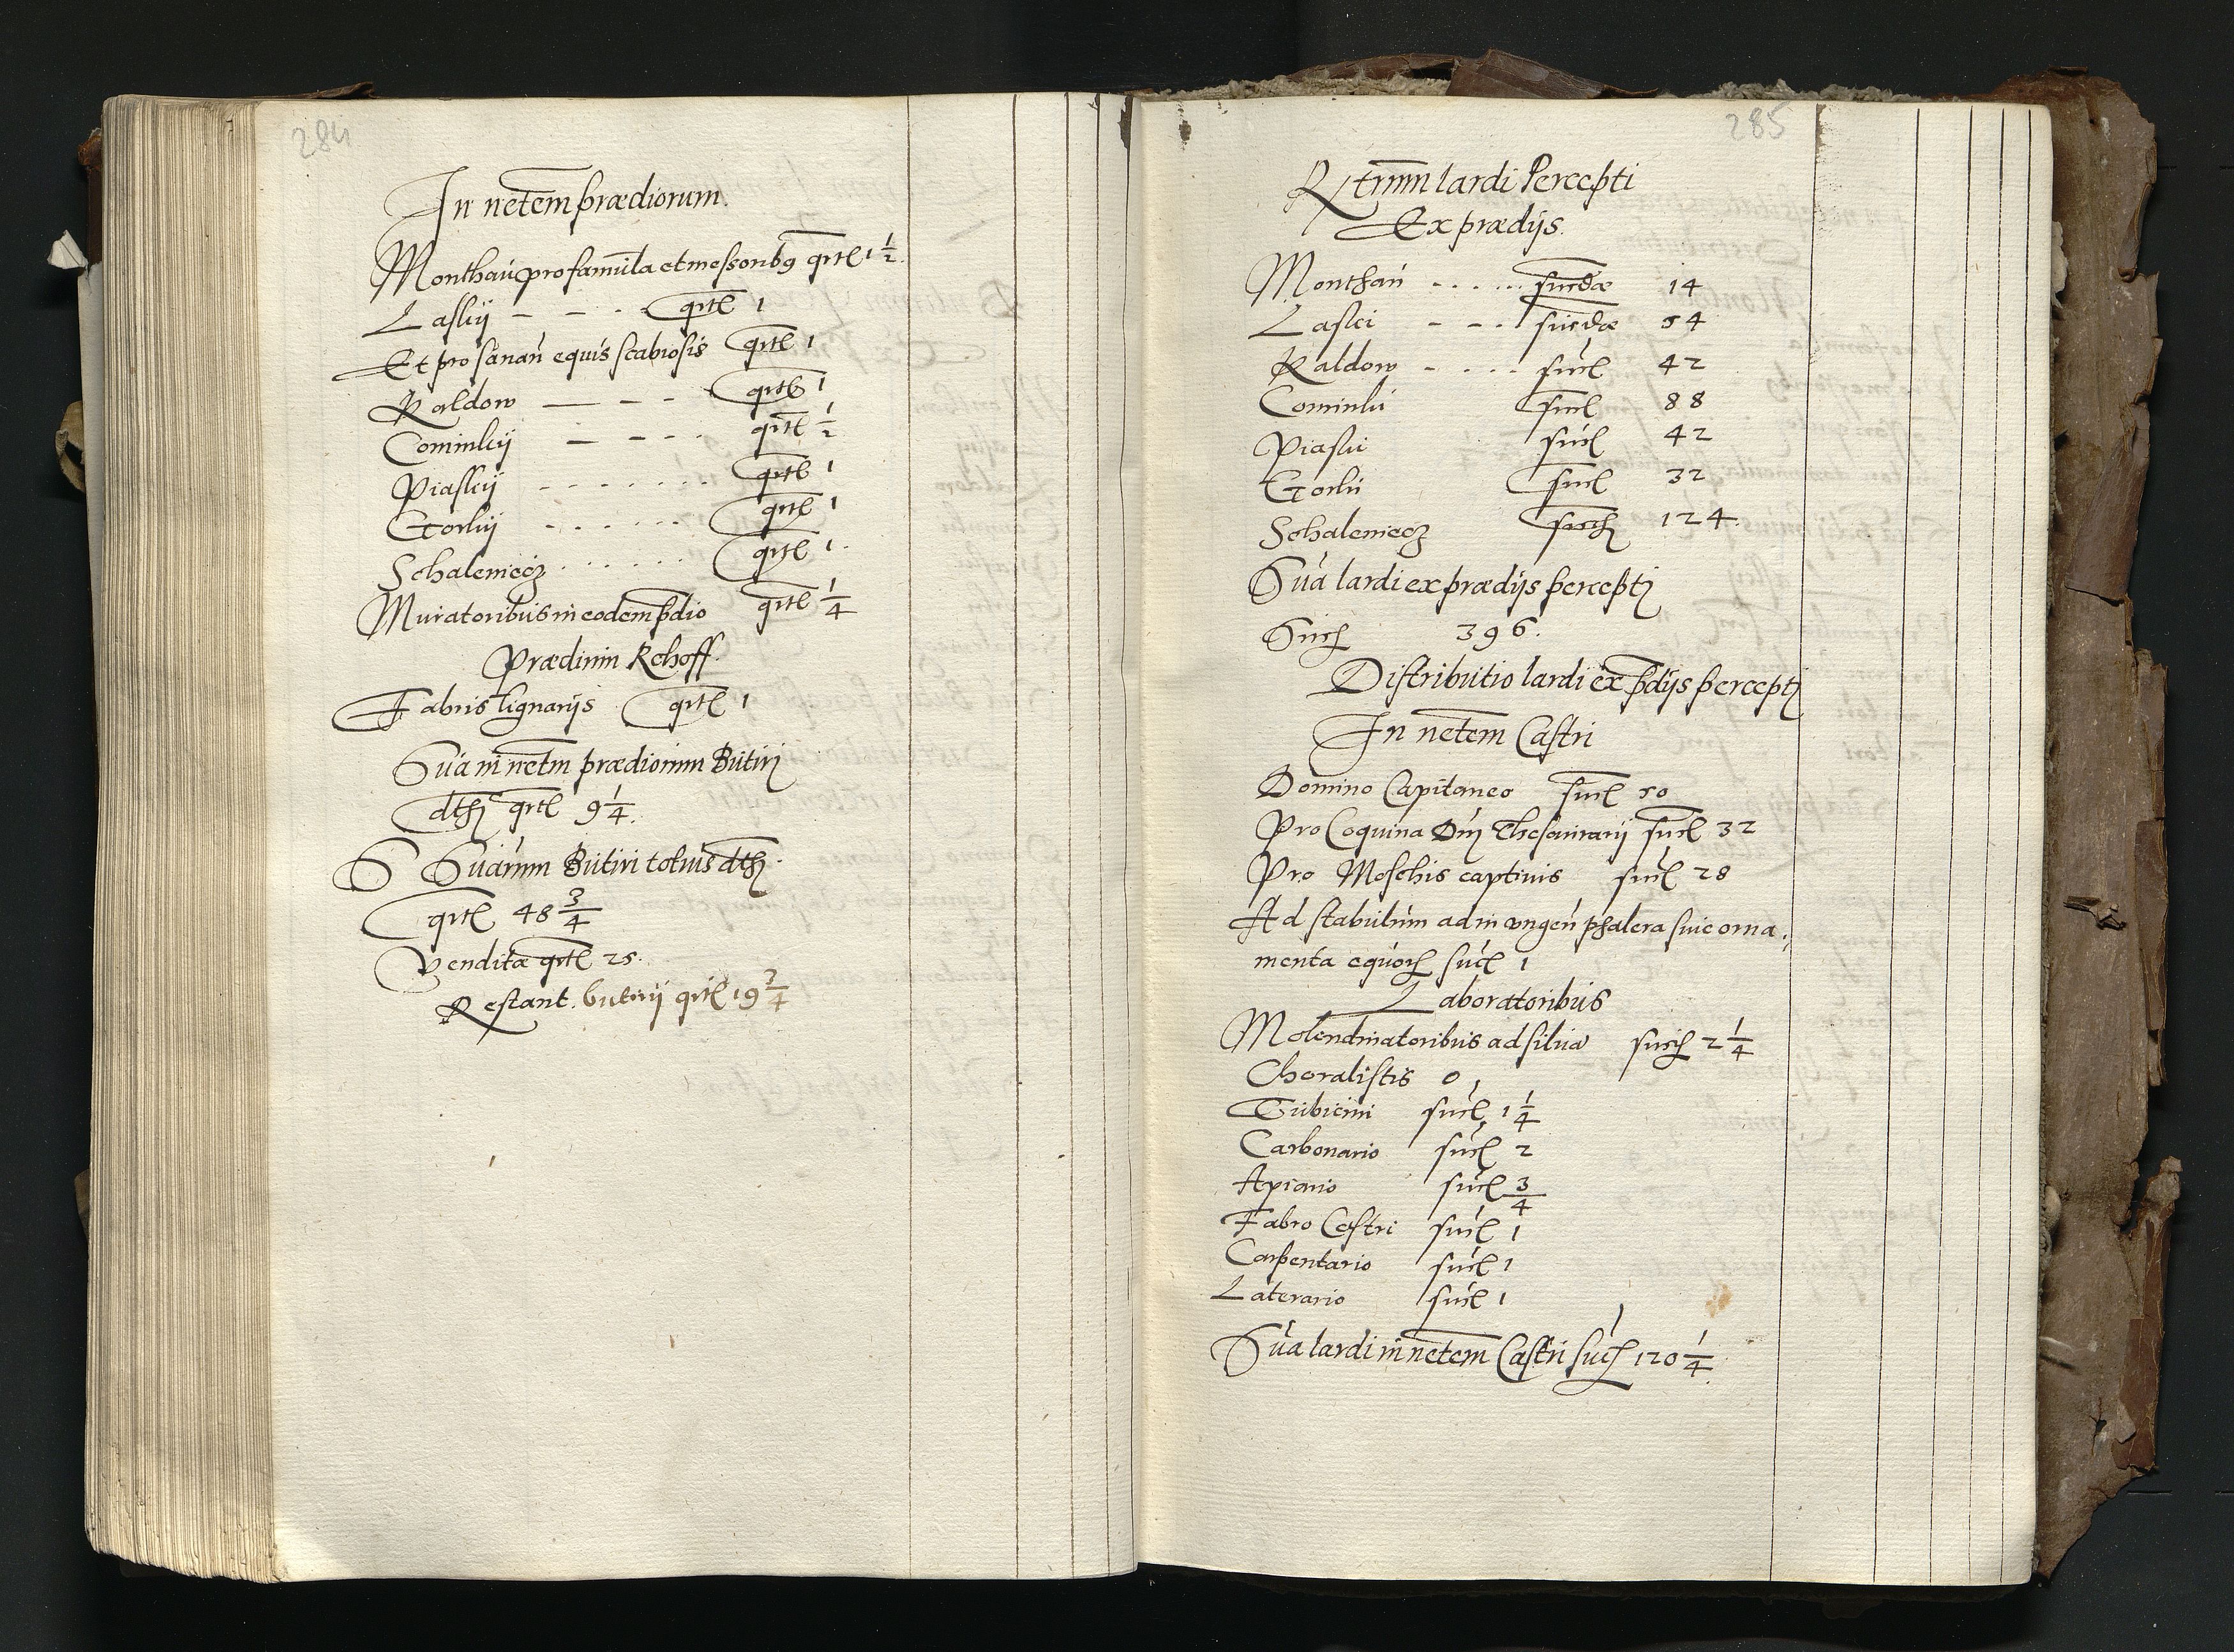 284
In netem prædiorum.
Monthau pro familia et messorib9 qrtl 1 1/2.
Laskij - - - qrtl 1
Et pro sanan equis scabiosis qrtl 1
Kaldow - - - qrtl 1
Cominkij - - - - qrtl 1/2
Piaskij - - - - - - qrtl 1
Gorkij - - - - - - qrtl 1
Schaleniecz . . . . . . qrtl 1.
Muratoribus in eodem pdio qrtl 1/4
Prædium Rehoff.
Fabris lignarijs qrtl 1
Sua in netm prædiorum Butiri
dth qrtl 9 1/4.
S Suarum Butiri totius dth.
qrtl 48 3/4
Vendita qrtl 25.
Restant. butirij qrtl 19 3/4
285
Rtrum lardi Percepti
Ex prædijs.
Monthau - - . . . . sucdæ 14
Laski - - - . sucdæ 54
Kaldow - . . . . sucl 42
Cominki sucl 88
Piaski sucl 42
Gorki sucl 32
Schaleniecz such 124.
Sua lardi ex prædijs percepti
Such 396.
Distributio lardi ex pdijs percepti
In netem Castri
Domino Capitaneo sucl 50
Pro Coquina Dnj Thesaurarij sucl 32
Pro Moschis captiuis sucl 28
Ad stabulum ad in vngen phalera siue orna;
menta equor sucl 1
Laboratoribus
Molendinatoribus ad silua such 2 1/4
Choralistis 0,
Tubicini sucl 1 1/4
Carbonario sucl 2
Apiario sucl 3/4
Fabro Castri sucl 1
Carpentario sucl 1
Laterario sucl 1
Sua lardi in netem Castri such 120 1/4.